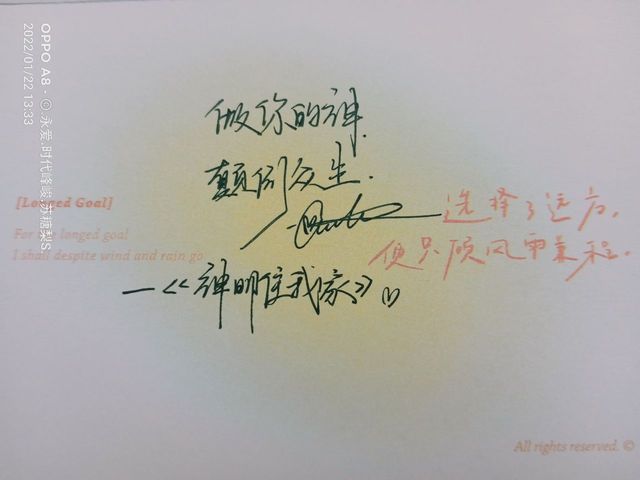 OPPO A8 · © 永爱.时代峰峻.苏打梨S
2022/01/22 13:33
做你的神.
颠倒众生.
[Longed Goal]
For the longed goal
I shall despite wind and rain go
选择了远方,
便只顾风雨兼程.
—《神明住我家》
All rights reserved. ©